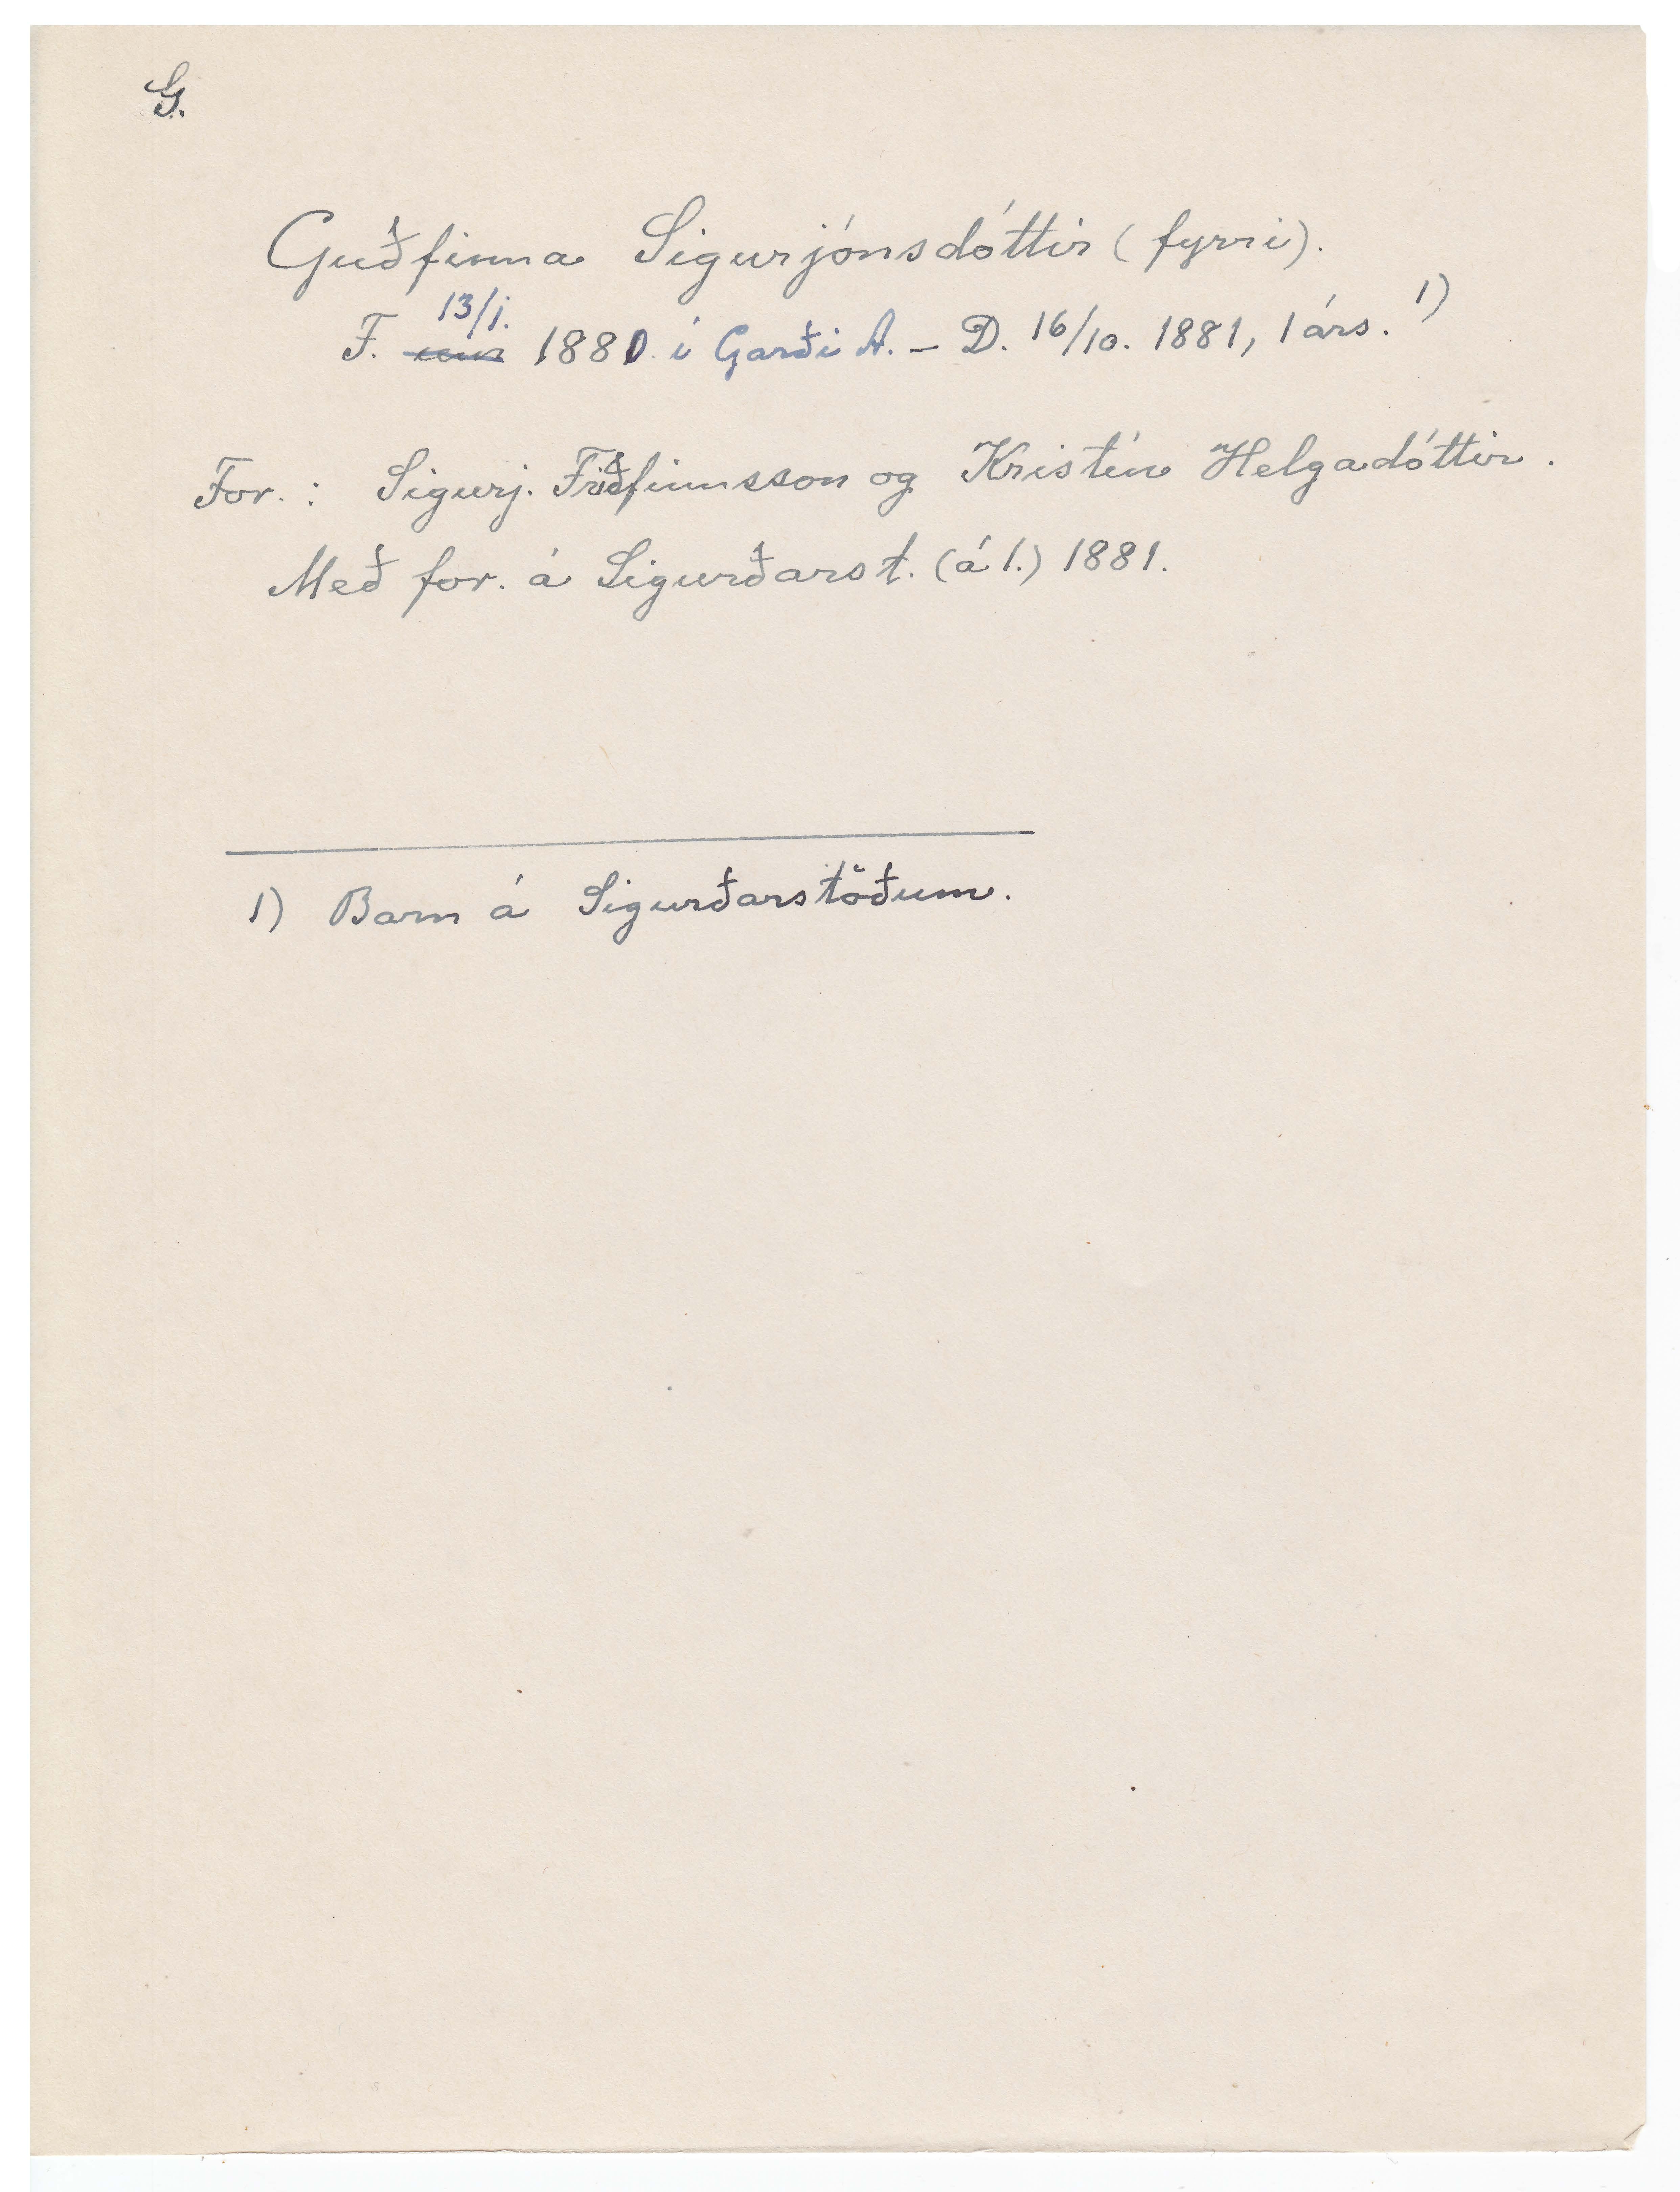 G.
Guðfinna Sigurjónsdóttir (fyrri).
F. 13/1. 1880 í Garði A. – D. 16/10. 1881, 1 árs. 1)
For.: Sigurj. Friðfinnsson og Kristín Helgadóttir.
Með for. á Sigurðarst. (á 1.) 1881.
1) Barn á Sigurðarstöðum.